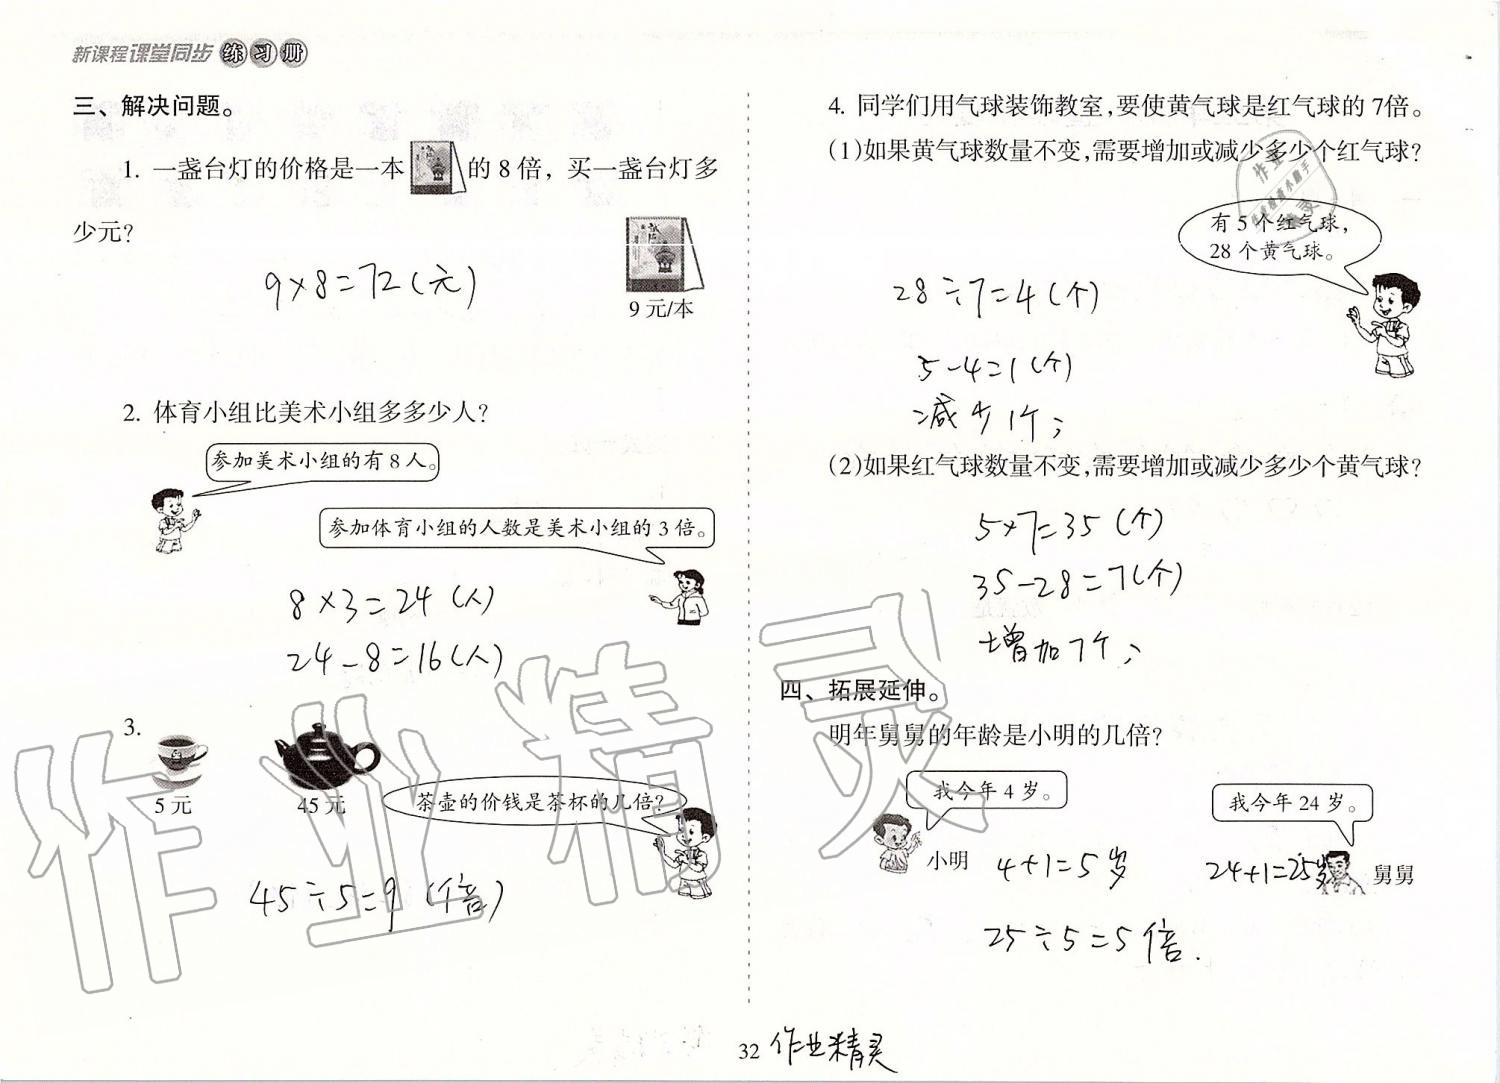 新课程课堂同步练习册
三、解决问题。
1. 一盏台灯的价格是一本 的 8 倍，买一盏台灯多
少元？
9 元/本
9×8=72(元)
2. 体育小组比美术小组多多少人？
参加美术小组的有 8 人。
参加体育小组的人数是美术小组的 3 倍。
8×3=24(人)
24-8=16(人)
3.
5 元
45 元
茶壶的价钱是茶杯的几倍？
45÷5=9(倍)
4. 同学们用气球装饰教室，要使黄气球是红气球的 7倍。
(1)如果黄气球数量不变，需要增加或减少多少个红气球？
有 5 个红气球，
28 个黄气球。
28÷7=4(个)
5-4=1(个)
减少1个；
(2)如果红气球数量不变，需要增加或减少多少个黄气球？
5×7=35(个)
35-28=7(个)
增加7个；
四、拓展延伸。
明年舅舅的年龄是小明的几倍？
我今年 4 岁。
我今年 24 岁。
小明
4+1=5岁
24+1=25岁
舅舅
25÷5=5倍.
32
作业精灵
作业精灵